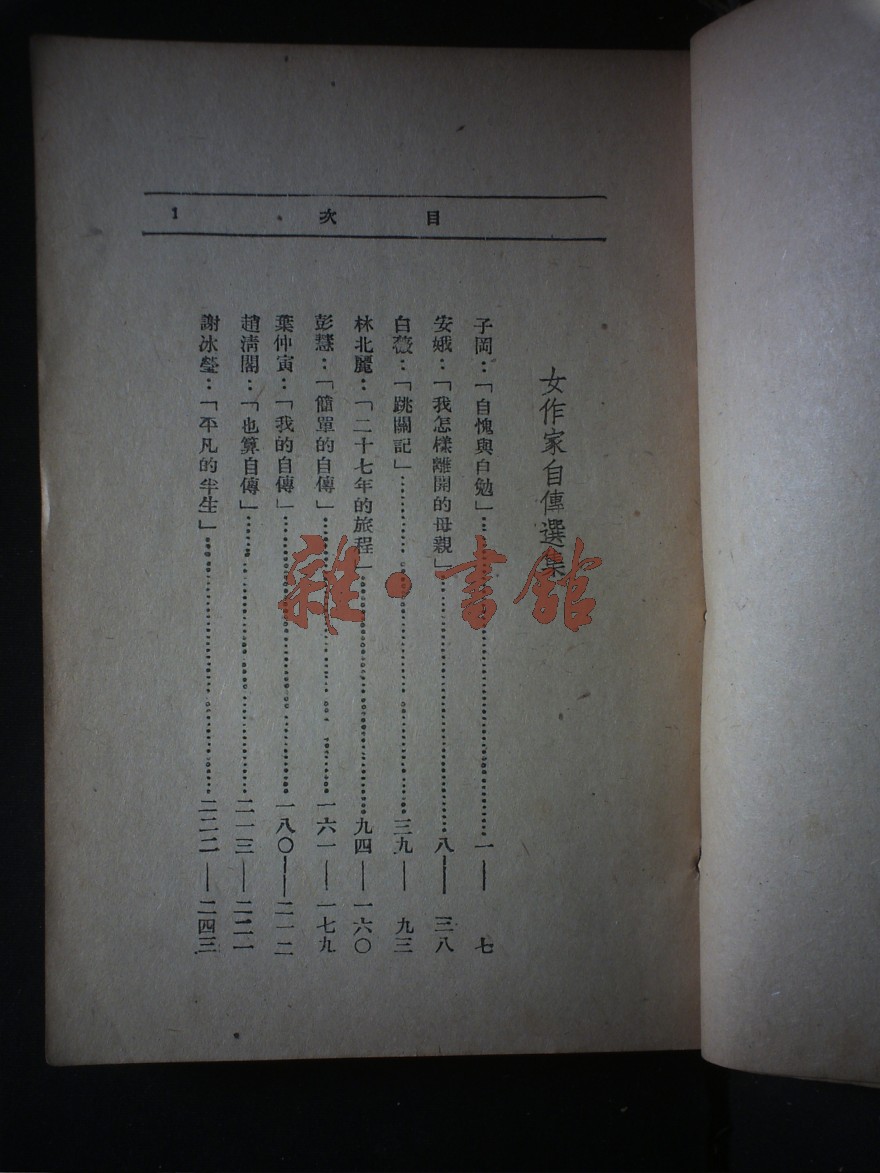 目次 1
女作家自傳選集
子岡：「自愧與自勉」……一——七
安娥：「我怎樣離開的母親」……八——三八
白薇：「跳關記」……三九——九三
林北麗：「二十七年的旅程」……九四——一六〇
彭慧：「簡單的自傳」……一六一——一七九
葉仲寅：「我的自傳」……一八〇——二一二
趙清閣：「也算自傳」……二一三——二二一
謝冰瑩：「平凡的半生」……二二二——二四三
雜·書館